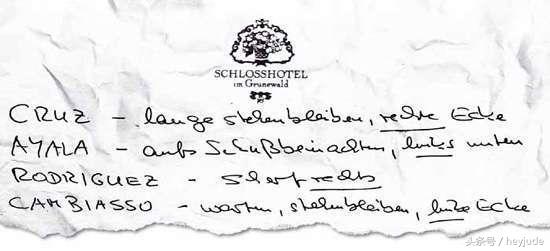 SCHLOSSHOTEL
im Grunewald
CRUZ – lange stehenbleiben, rechte Ecke
AYALA – aufs Schußbein achten, links unten
RODRIGUEZ – rechts
CAMBIASSO – warten, stehenbleiben, linke Ecke
头条号 / heyjude